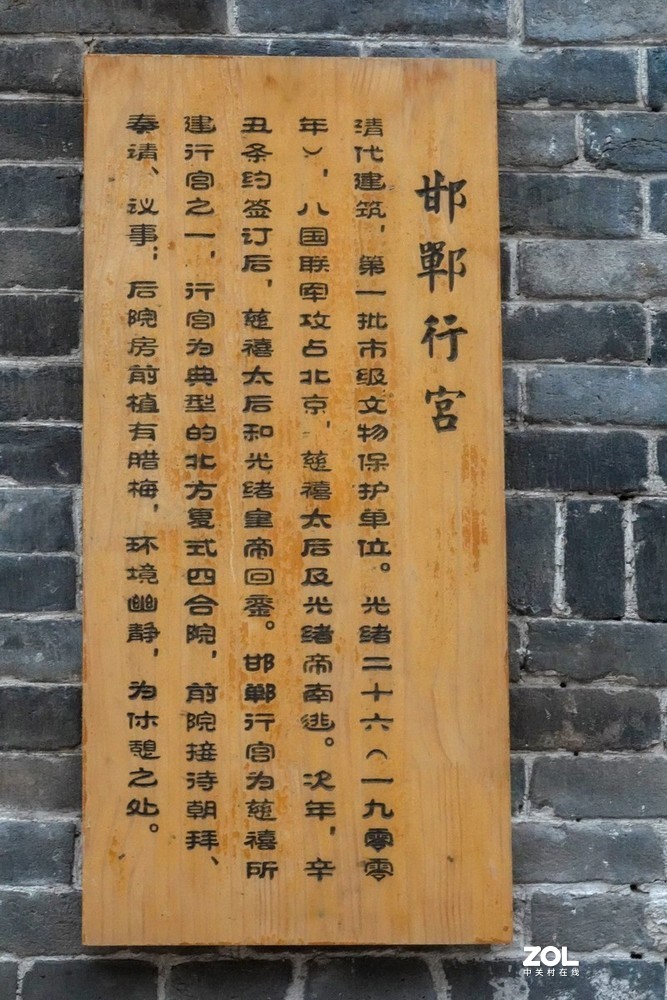 邯郸行宫
清代建筑，第一批市级文物保护单位。光绪二十六（一九零零
年），八国联军攻占北京，慈禧太后及光绪帝南逃。次年，辛
丑条约签订后，慈禧太后和光绪皇帝回銮。邯郸行宫为慈禧所
建行宫之一，行宫为典型的北方复式四合院，前院接待朝拜、
奏请、议事；后院房前植有腊梅，环境幽静，为休憩之处。
ZOL
中关村在线